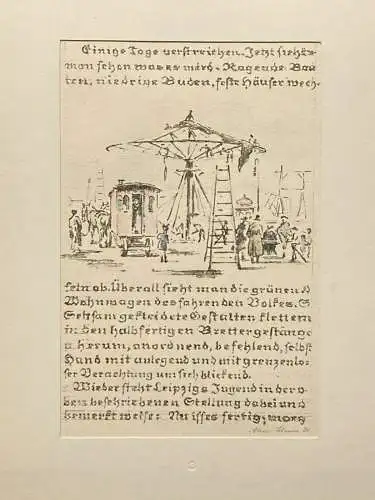 Einige Tage verstreichen. Jetzt sieht
man schon was es wird. Ragende Bau
ten, niedrige Buden, feste Häuser wech-
seln ab. Überall sieht man die grünen
Wohnwagen des fahrenden Volkes.
Seltsam gekleidete Gestalten klettern
in den halbfertigen Brettergestänge
herum, anordnend, befehlend, selbst
Hand mit anlegend und mit grenzenlo-
ser Verachtung um sich blickend.
Wieder steht Leipzigs Jugend in der o
ben beschriebenen Stellung dabei und
bemerkt weise: Nu isses fertig; morg